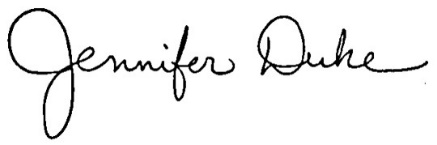 Jennifer Duke